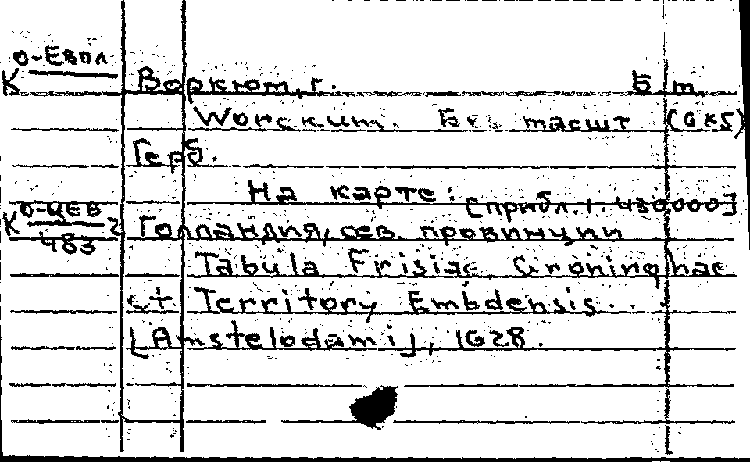 К О-Евпл
Воркюм, г. Б. м.
Worckum. Без масшт (GKS)
Герб.
На карте:
[прибл. 1:430000]
К О-ЦЕВ 2
483
Голландия, сев. провинции
Tabula Frisiae, Groninghae
et Territory Embdensis...
[Amstelodami], 1628.